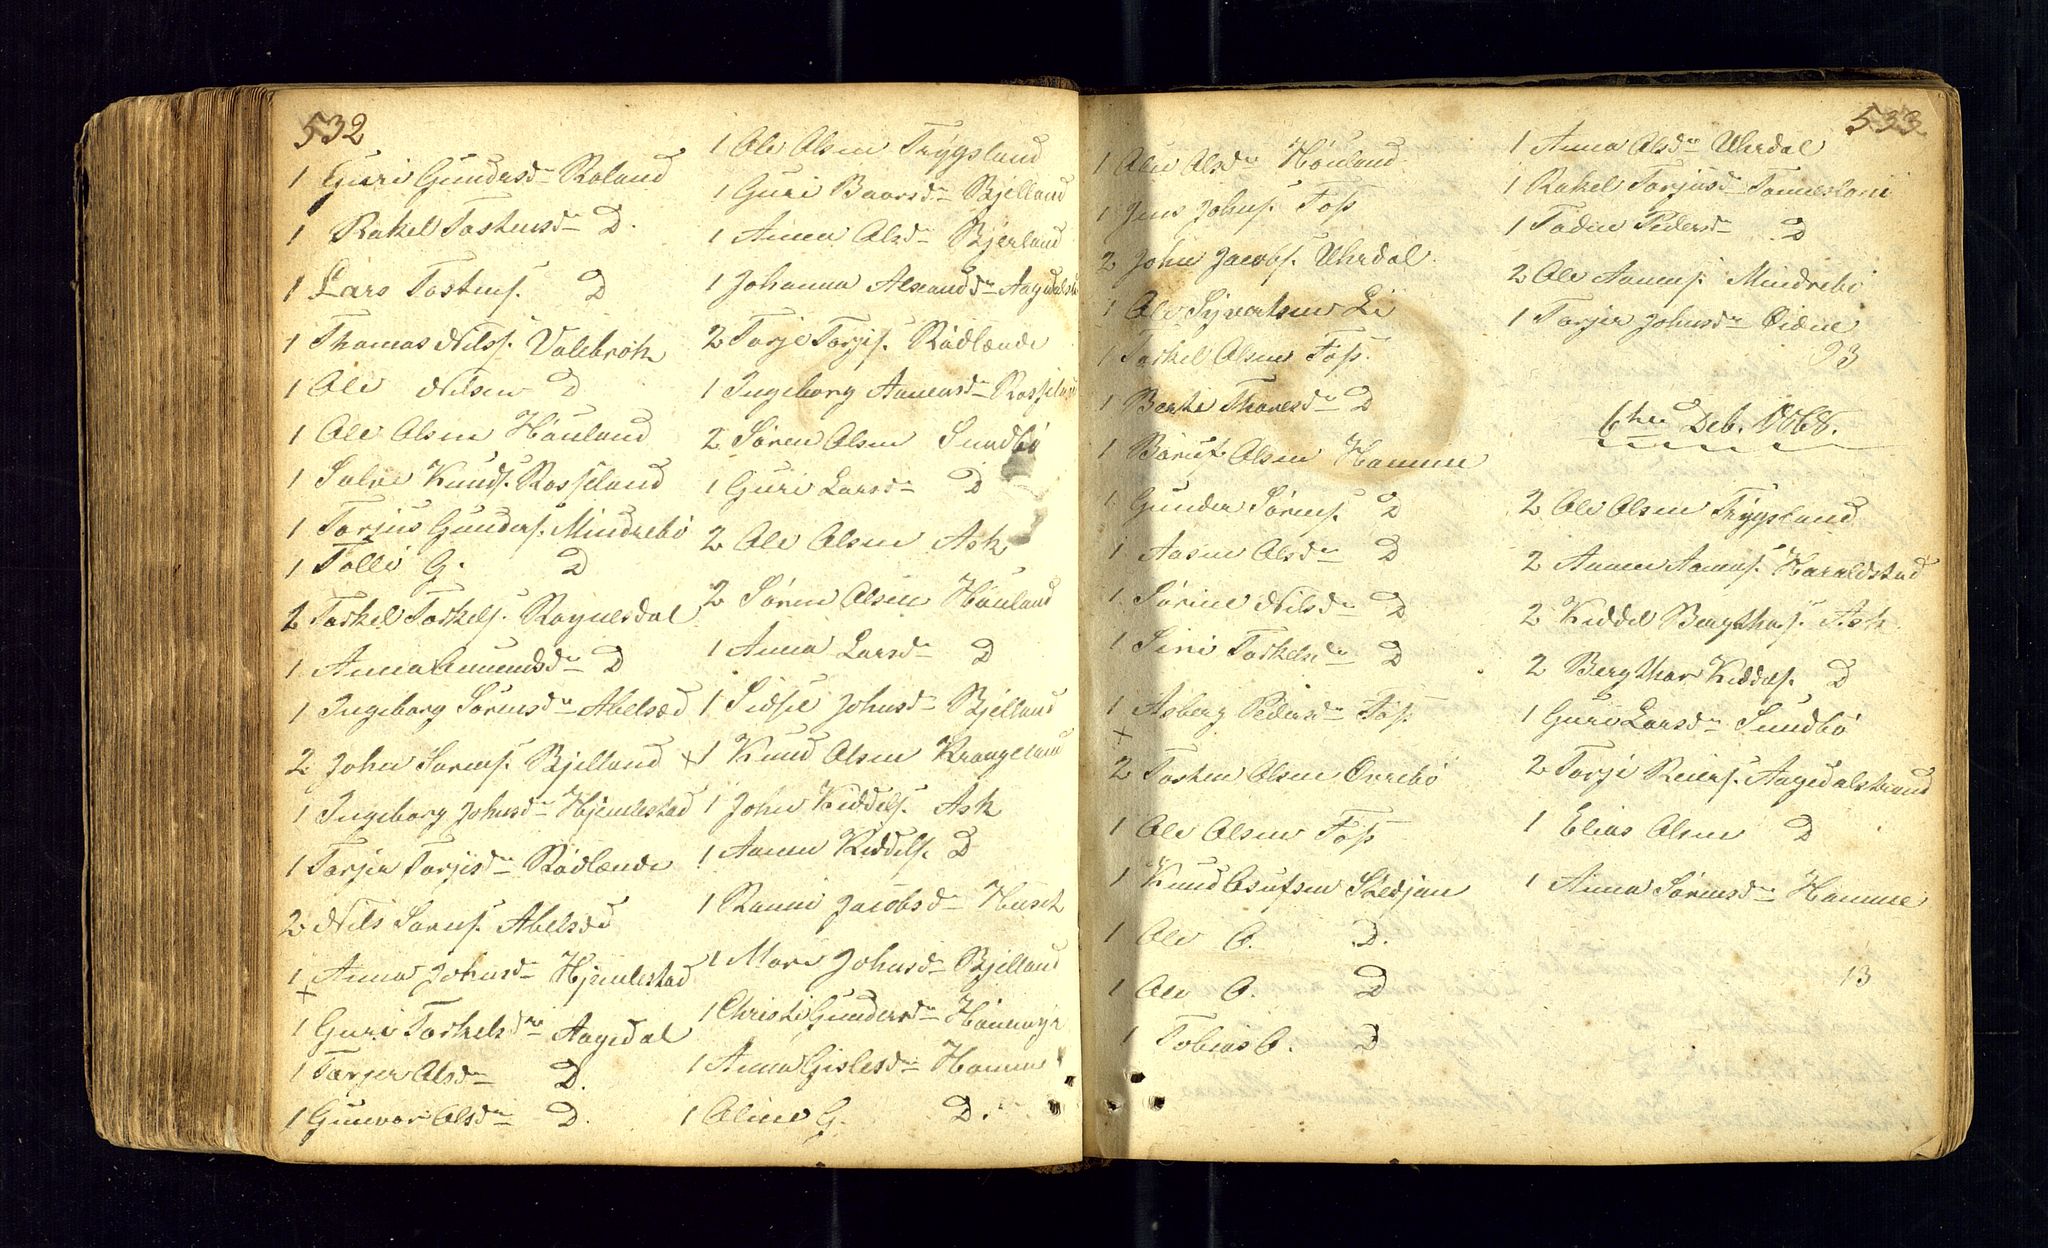 532
1 Guri Gundersd. Røland
1 Rakel Tostensd. D.
1 Lars Tostens. D
1 Thomas Nilss. Valebrok
1 Ole Nilsen D
1 Ole Olsen Hönland
1 Salve Knuds. Rosseland
1 Torjus Gunders. Mindrebö
1 Tolló G. D
2 Torkel Torkels. Rognesdal
1 Anna Amundsd. D
1 Ingeborg Sörensd. Abelsæd
2 John Sörens. Bjelland
1 Ingeborg Johnsd. Hjemlestad
1 Torjer Torjesd. Rödlænde
2 Nils Sörens. Abelsæd
1 Anna Johnsd. Hjemlestad
+
1 Guri Torkelsd. Aagedal
1 Torjer Olsd. D.
1 Gunvor Olsd. D.
1 Ole Olsen Trygsland
1 Guri Baarsd. Bjelland
1 Anna Olsd. Bjerland
1 Johanna
2 Torje Torjes. Rödlænde
1 Ingeborg Aanensd.
2 Sören Olsen Sundbö
1 Guri Larsd. D
2 Ole Olsen Ask
2 Sören Olsen Hönland
1 Anna Larsd. D
1 Sidsel Johnsd. Bjelland
+1 Knud Olsen
1 John Keddels. Ask
1 Aanen Keddels. D
1 Ranni Jacobsd. Husek
1 Mari Johnsd. Bjelland
1 Christi Gundersd.
1 Anna Gislesd. Homme
1 Oline G. D.
533
1 Olsd. Hönland
1 Jens Johns. Foss
2 John Jacobs. Uhrdal
1 Ole Syvertsen Li
1 Torkel Olsen Foss.
1 Berte Thoresd. D
1 Olsen Homme
1 Gunder Sörens. D
1 Aasne Olsd. D
1 Sörine Nilsd. D
1 Siri Torkelsd. D
1 Asberg Pedersd. Foss.
+
2 Tosten Olsen
1 Ole Olsen Foss
1 Knud Osufsen
1 Ole O. D.
1 Ole O. D
1 Tobias O. D
1 Anna Olsd. Uhrdal
1 Rakel Torjusd.
1 Todne Pedersd. D
2 Ole Aanens. Mindrebö
1 Torjer Johnsd. Eidne
93
6te Deb. 1868.
2 Ole Olsen Trygsland
2 Aanen Aanens. Haraldstad
2 Keddel Bergthors. Ask
2 Bergthor Keddels. D
1 Guri Larsd. Sundbö
2 Torje Reiers. Aagedalstrand
1 Elias Olsen D
1 Anna Sörensd. Homme
13